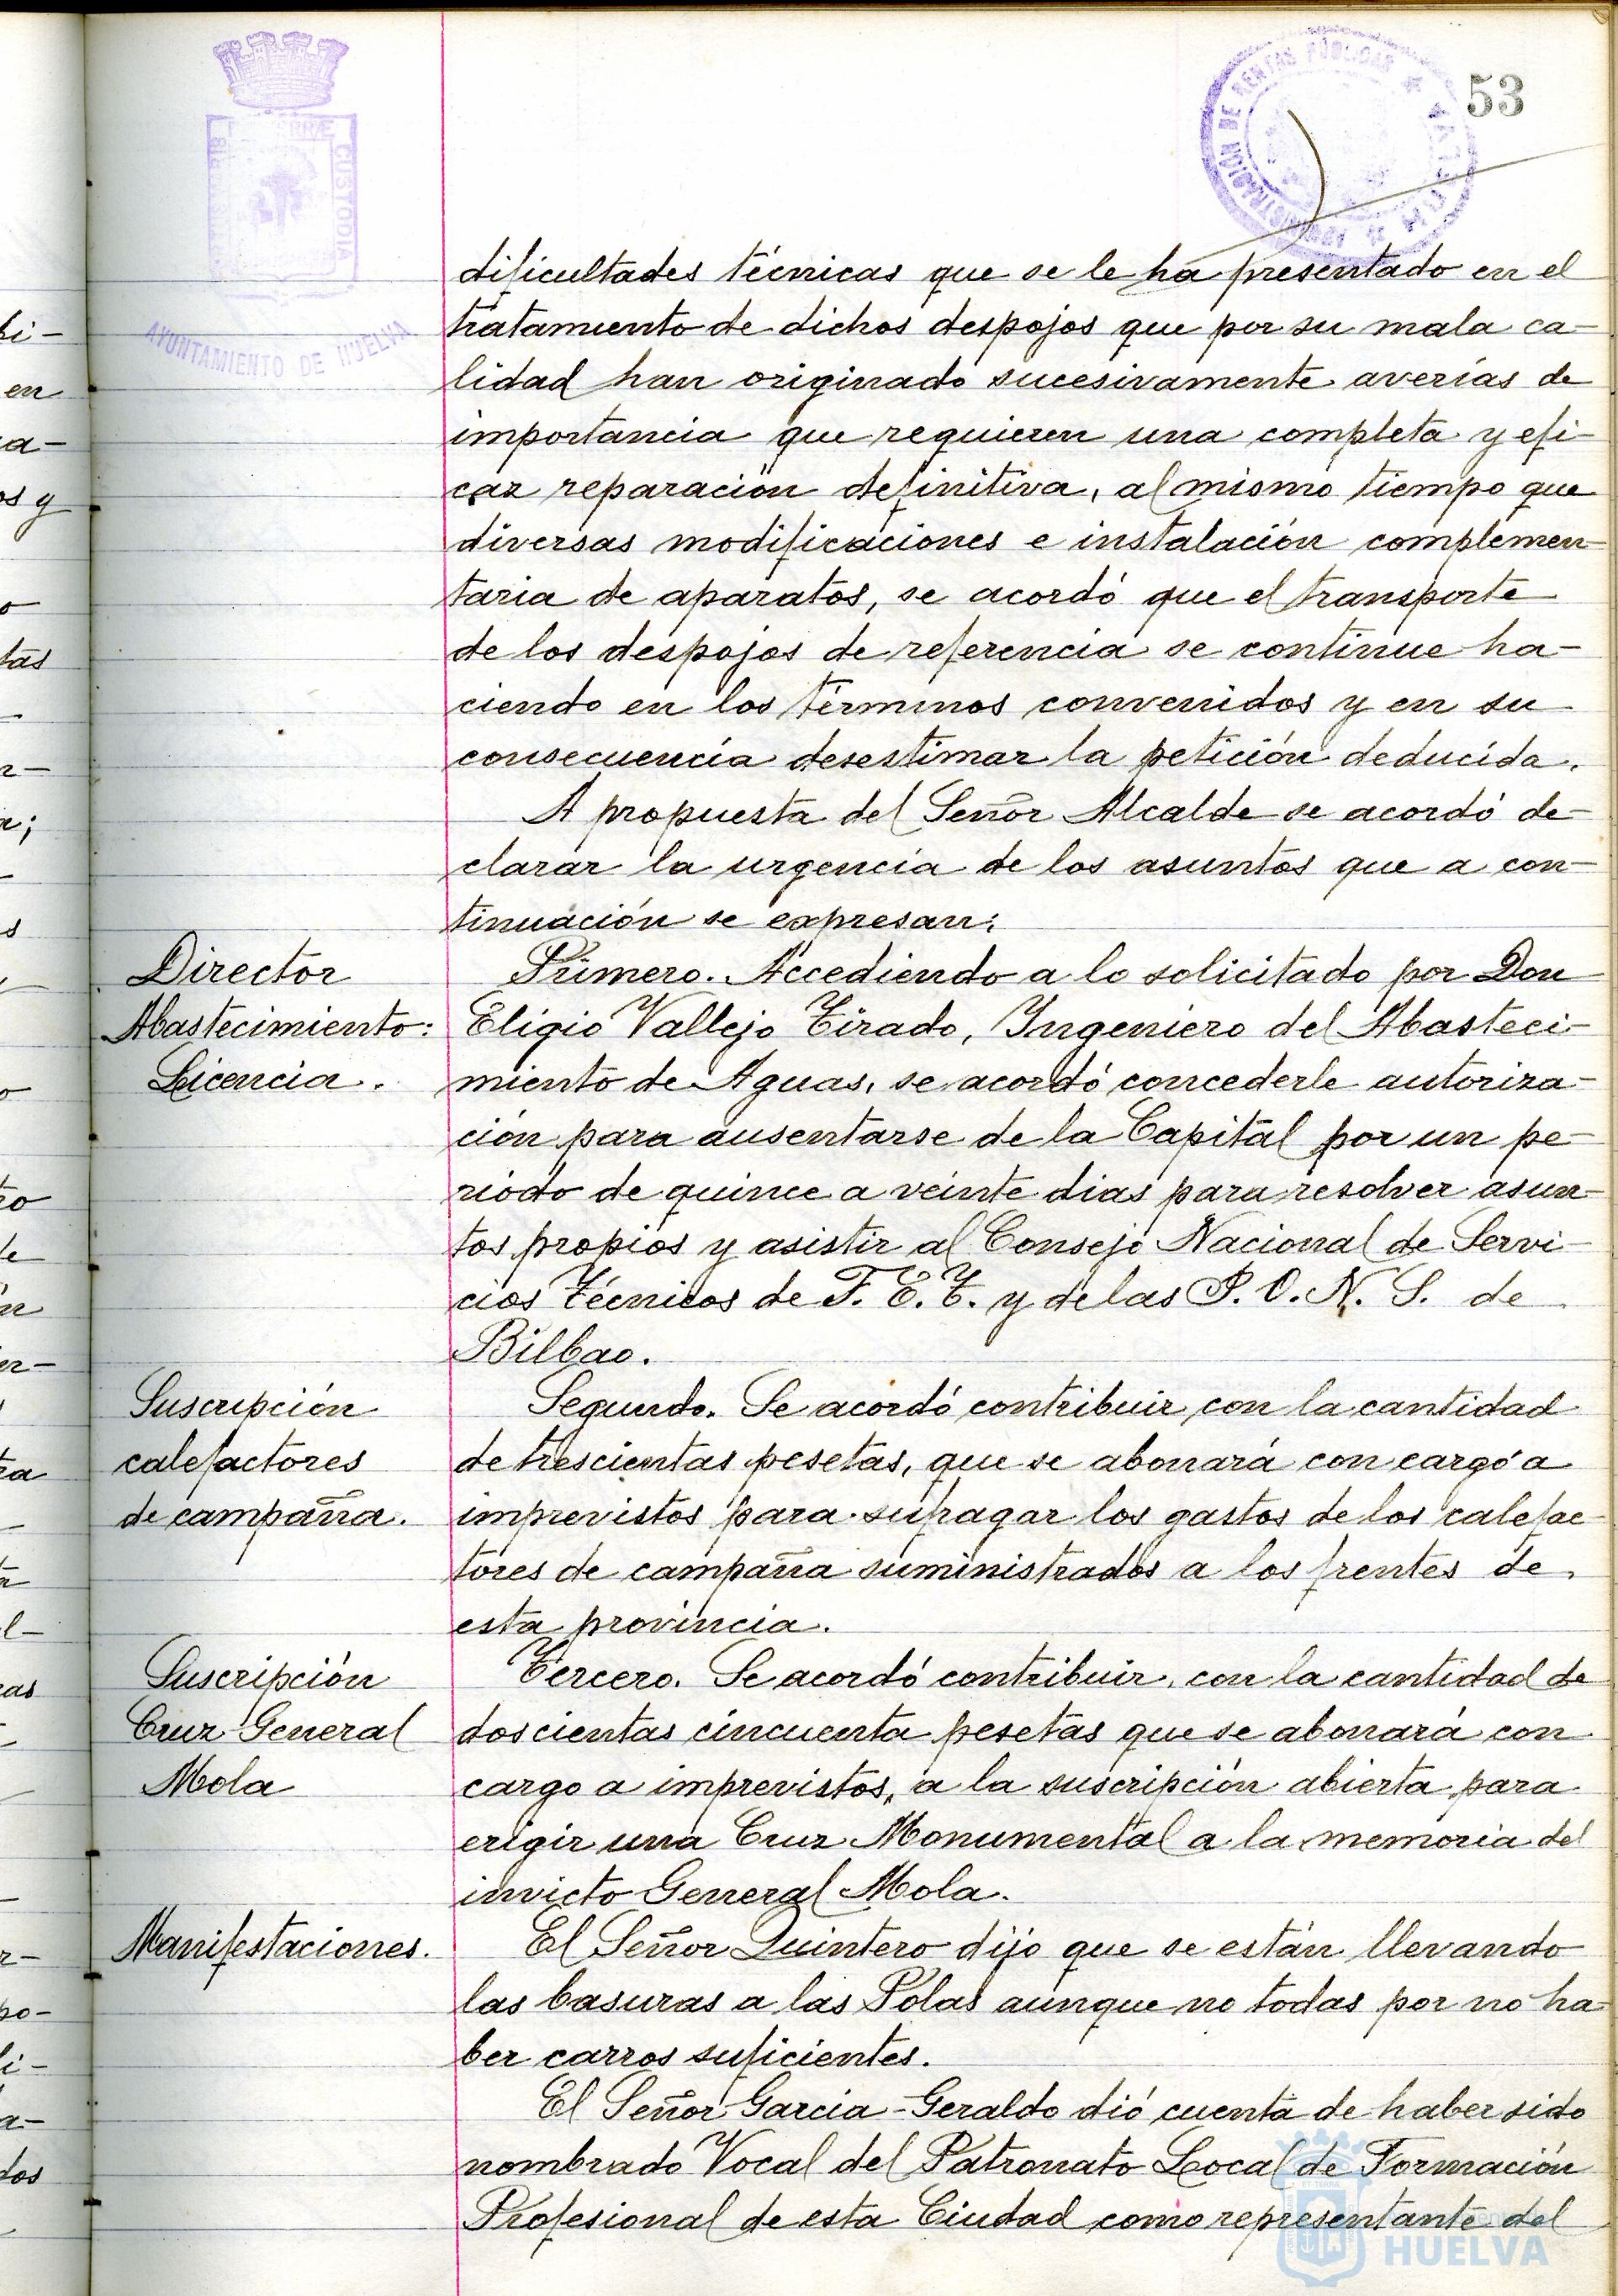 53
ADMINISTRACIÓN DE RENTAS PÚBLICAS
HUELVA
CUSTODIA
AYUNTAMIENTO DE HUELVA
dificultades técnicas que se le ha presentado en el
tratamiento de dichos despojos que por su mala ca-
lidad han originado sucesivamente averías de
importancia que requieren una completa y efi-
caz reparación definitiva, al mismo tiempo que
diversas modificaciones e instalación complemen-
taria de aparatos, se acordó que el transporte
de los despojos de referencia se continue ha-
ciendo en los términos convenidos y en su
consecuencia desestimar la petición deducida.
A propuesta del Señor Alcalde se acordó de-
clarar la urgencia de los asuntos que a con-
tinuación se expresan:
Director
Abastecimiento:
Licencia.
Primero. Accediendo a lo solicitado por Don
Eligio Vallejo Tirado, Ingeniero del Abasteci-
miento de Aguas, se acordó concederle autoriza-
ción para ausentarse de la Capital por un pe-
riodo de quince a veinte dias para resolver asun-
tos propios y asistir al Consejo Nacional de Servi-
cios Técnicos de F. E. T. y de las J. O. N. S. de
Bilbao.
Suscripción
calefactores
de campaña.
Segundo. Se acordó contribuir con la cantidad
de trescientas pesetas, que se abonará con cargo a
imprevistos para sufragar los gastos de los calefac-
tores de campaña suministrados a los frentes de
esta provincia.
Suscripción
Cruz General
Mola
Tercero. Se acordó contribuir, con la cantidad de
doscientas cincuenta pesetas que se abonará con
cargo a imprevistos, a la suscripción abierta para
erigir una Cruz Monumental a la memoria del
invicto General Mola.
Manifestaciones.
El Señor Quintero dijo que se están llevando
las basuras a las Polas aunque no todas por no ha-
ber carros suficientes.
El Señor García-Geraldo dió cuenta de haber sido
nombrado Vocal del Patronato Local de Formación
Profesional de esta Ciudad como representante del
HUELVA